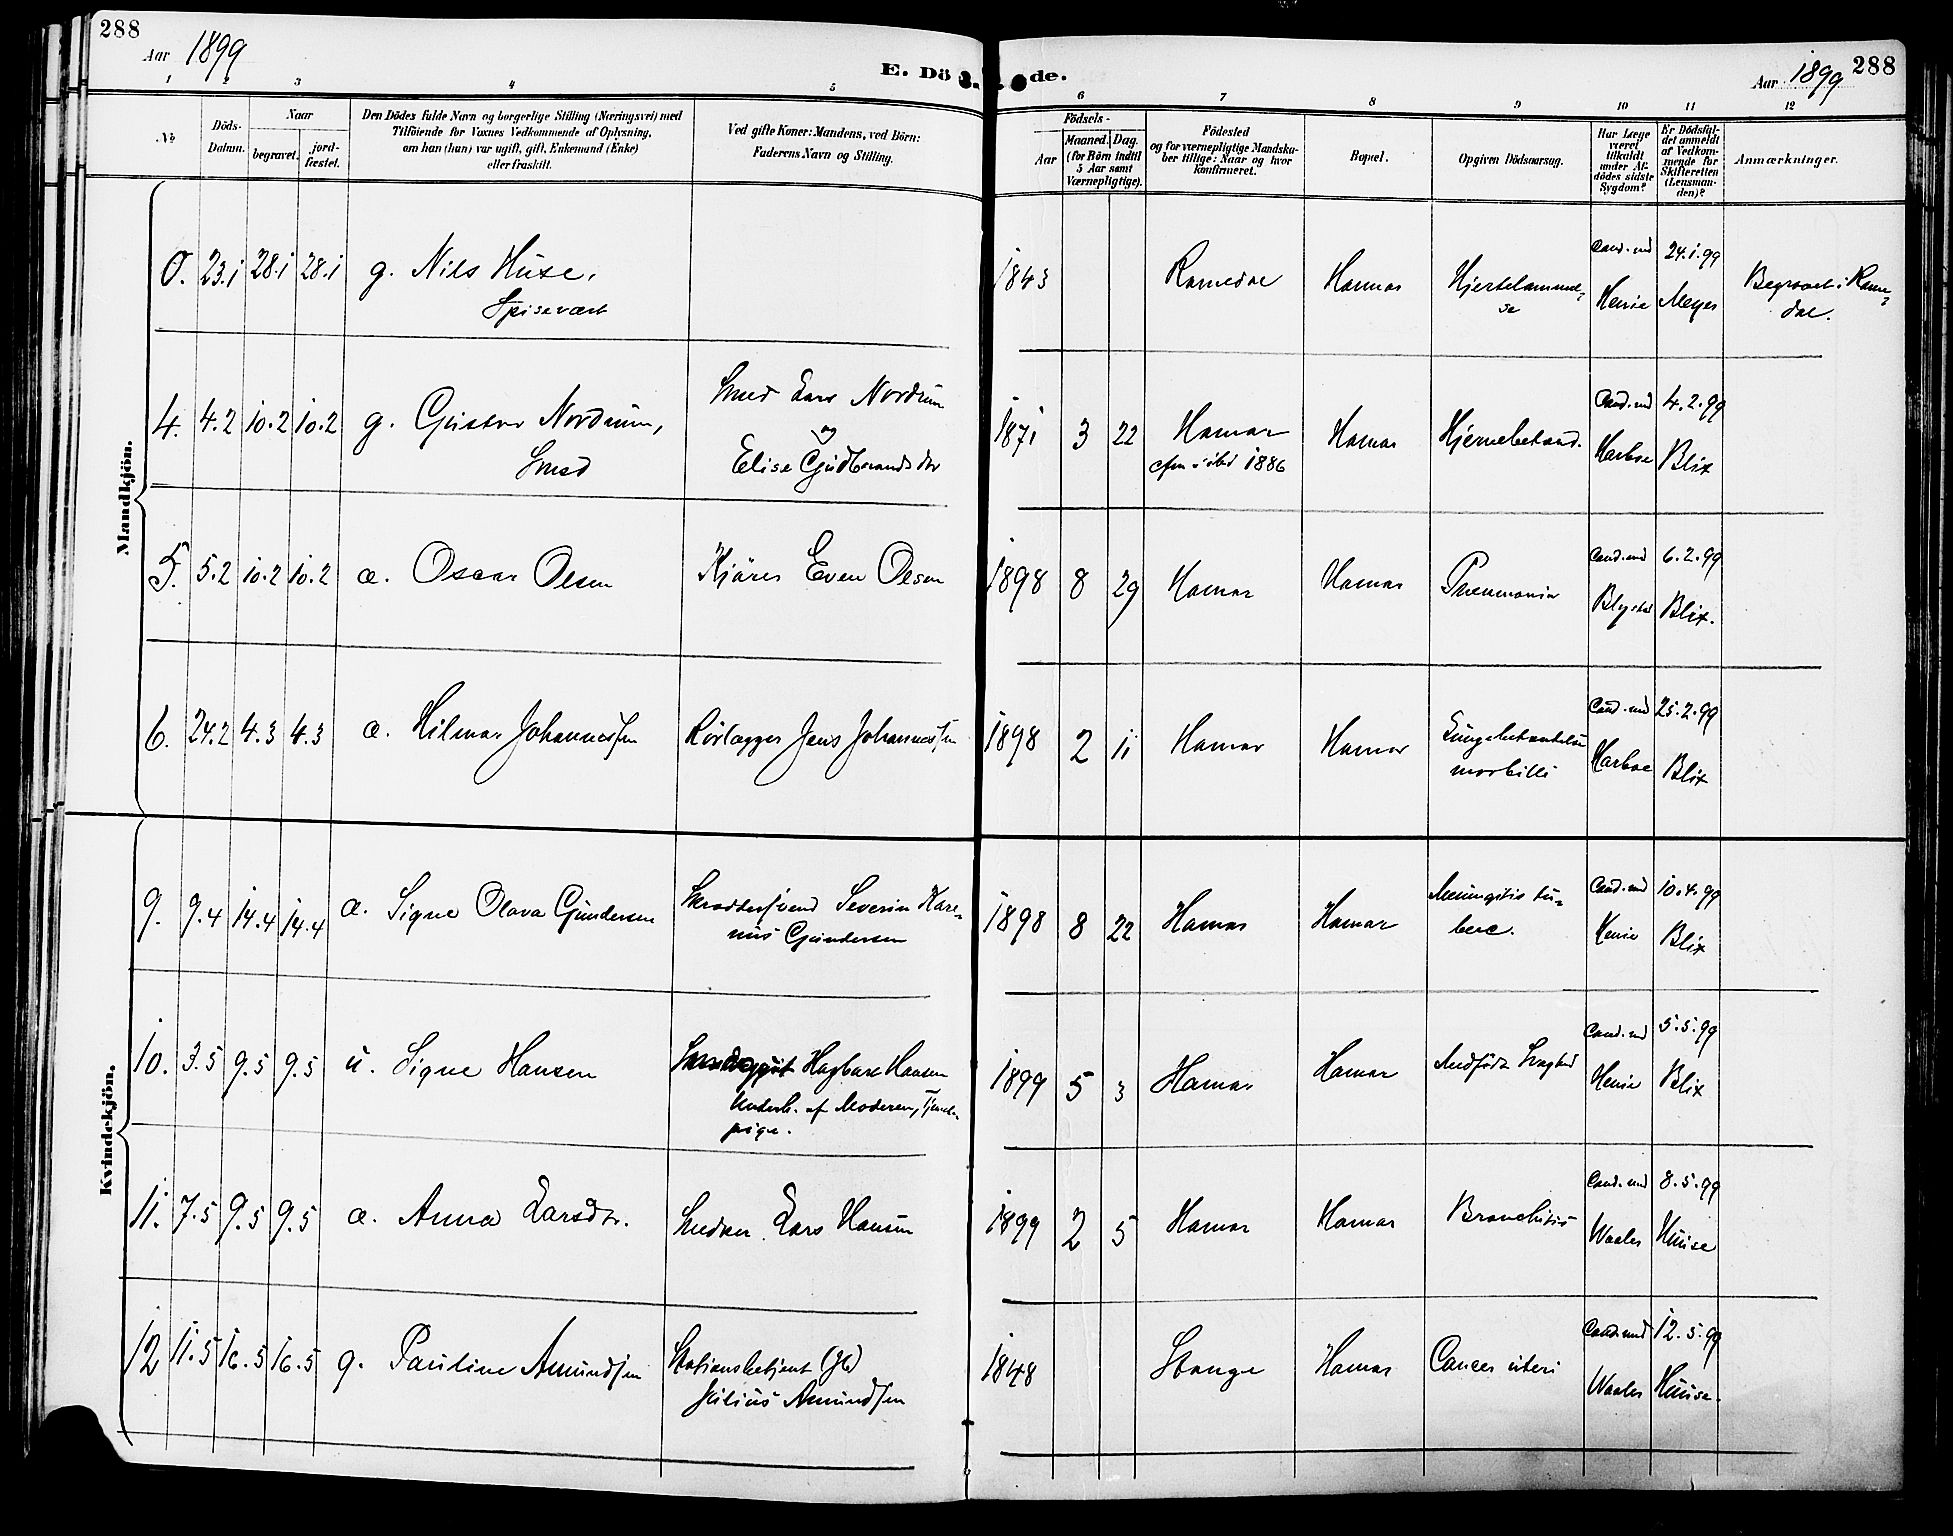 288
Aar 1899
E. Dö de.
Aar 1899 288
1 2 3 4 5 6 7 8 9 10 11 12
No
Döds-
Datum.
Naar
begravet.
jord-
fæstet.
Den Dödes fulde Navn og borgerlige Stilling (Næringsvei) med
Tilföiende for Voxnes Vedkommende af Oplysning,
om han (hun) var ugift, gift, Enkemand (Enke)
eller fraskilt.
Ved gifte Koner: Mandens, ved Börn:
Faderens Navn og Stilling.
Födsels-
Aar
Maaned. Dag.
(for Börn indtil
5 Aar samt
Værnepligtige).
Födested
og for værnepligtige Mandska-
ber tillige: Naar og hvor
konfirmeret.
Bopæl.
Opgiven Dödsaarsag.
Har Læge
været
tilkaldt
under Af-
dödes sidste
Sygdom?
Er Dödsfal-
det anmeldt
af Vedkom-
mende for
Skifteretten
(Lensman-
den)?
Anmærkninger.
Mandkjön.
0. 23.1 28.1 28.1 g. Nils Huse,
Spisevært
1843 Romedal Hamar Hjertelammel-
se
Cand. med
Henie
24.1.99
Meyer
Begravet i Rome-
dal.
4. 4.2 10.2 10.2 g. Gustav Nordrum,
Smed
Smed Lars Nordrum
og
Elise Gudbrandsdtr
1871 3 22 Hamar
cfm i ibid 1886
Hamar Hjernebetænd.
Cand. med
Harboe
4.2.99
Blix
5. 5.2 10.2 10.2 æ. Oscar Olsen
Kjörer Even Olsen
1898 8 29 Hamar Hamar Pneumonia
Cand. med
Blystad
6.2.99
Blix.
6. 24.2 4.3 4.3 æ. Hilmar Johannessen
Rörlægger Jens Johannessen
1898 2 11 Hamar Hamar Lungebetændelse
morbilli
Cand. med
Harboe
25.2.99
Blix
Kvindekjön.
9. 9.4 14.4 14.4 æ. Signe Olava Gundersen
Skrædersvend Severin Kare-
nius Gundersen
1898 8 22 Hamar Hamar Meningitis tu-
berc.
Cand. med
Henie
10.4.99
Blix
10. 3.5 9.5 9.5 u. Signe Hansen
Hagbart Hansen
Underh. af Moderen, Tjeneste-
pige.
1899 5 3 Hamar Hamar Medfödt Svaghed
Cand. md
Henie
5.5.99
Blix
11. 7.5 9.5 9.5 æ. Anna Larsdtr.
Snedker Lars Hansen
1899 2 5 Hamar Hamar Bronchitis
Cand. med
Waaler
8.5.99
Huuse
12 11.5 16.5 16.5 g. Pauline Amundsen
Stationsbetjent
Julius Amundsen
1848 Stange Hamar Cancer uteri
Cand. med
Waaler
12.5.99
Huuse.